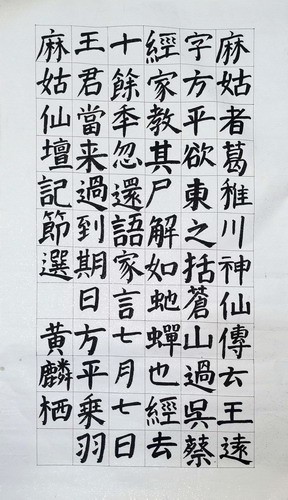 麻姑者葛稚川神仙傳云王遠
字方平欲東之括蒼山過吳蔡
經家教其尸解如虵蟬也經去
十餘秊忽還語家言七月七日
王君當来過到期日方平乗羽
麻姑仙壇記節選 黄麟栖